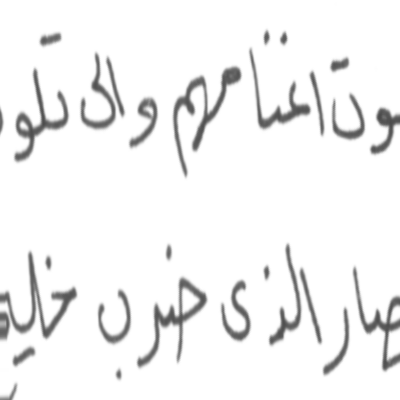 ـوت اغنامهم والى تلو
ـصار الذى ضرب خليـ